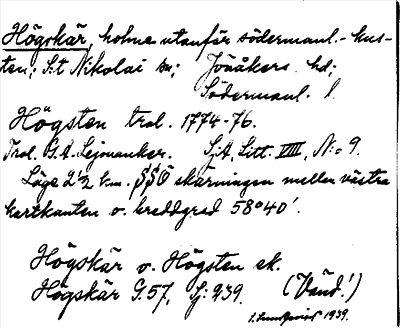 Högskär, holme utanför södermanl.-kus-
ten; S:t Nikolai sn; Jönåkers hd;
Södermanl. l.
Högsten trol. 1774-76.
Trol. G.A. Lejonanker. SjA, Litt. VIII, N:o 9.
Läge 2½ km. SSO skärningen mellan västra
kartkanten o. breddgrad 58°40'.
Högskär o. Högsten ek.
Högskär G.57, Sj: 239. (Vänd!)
1939.